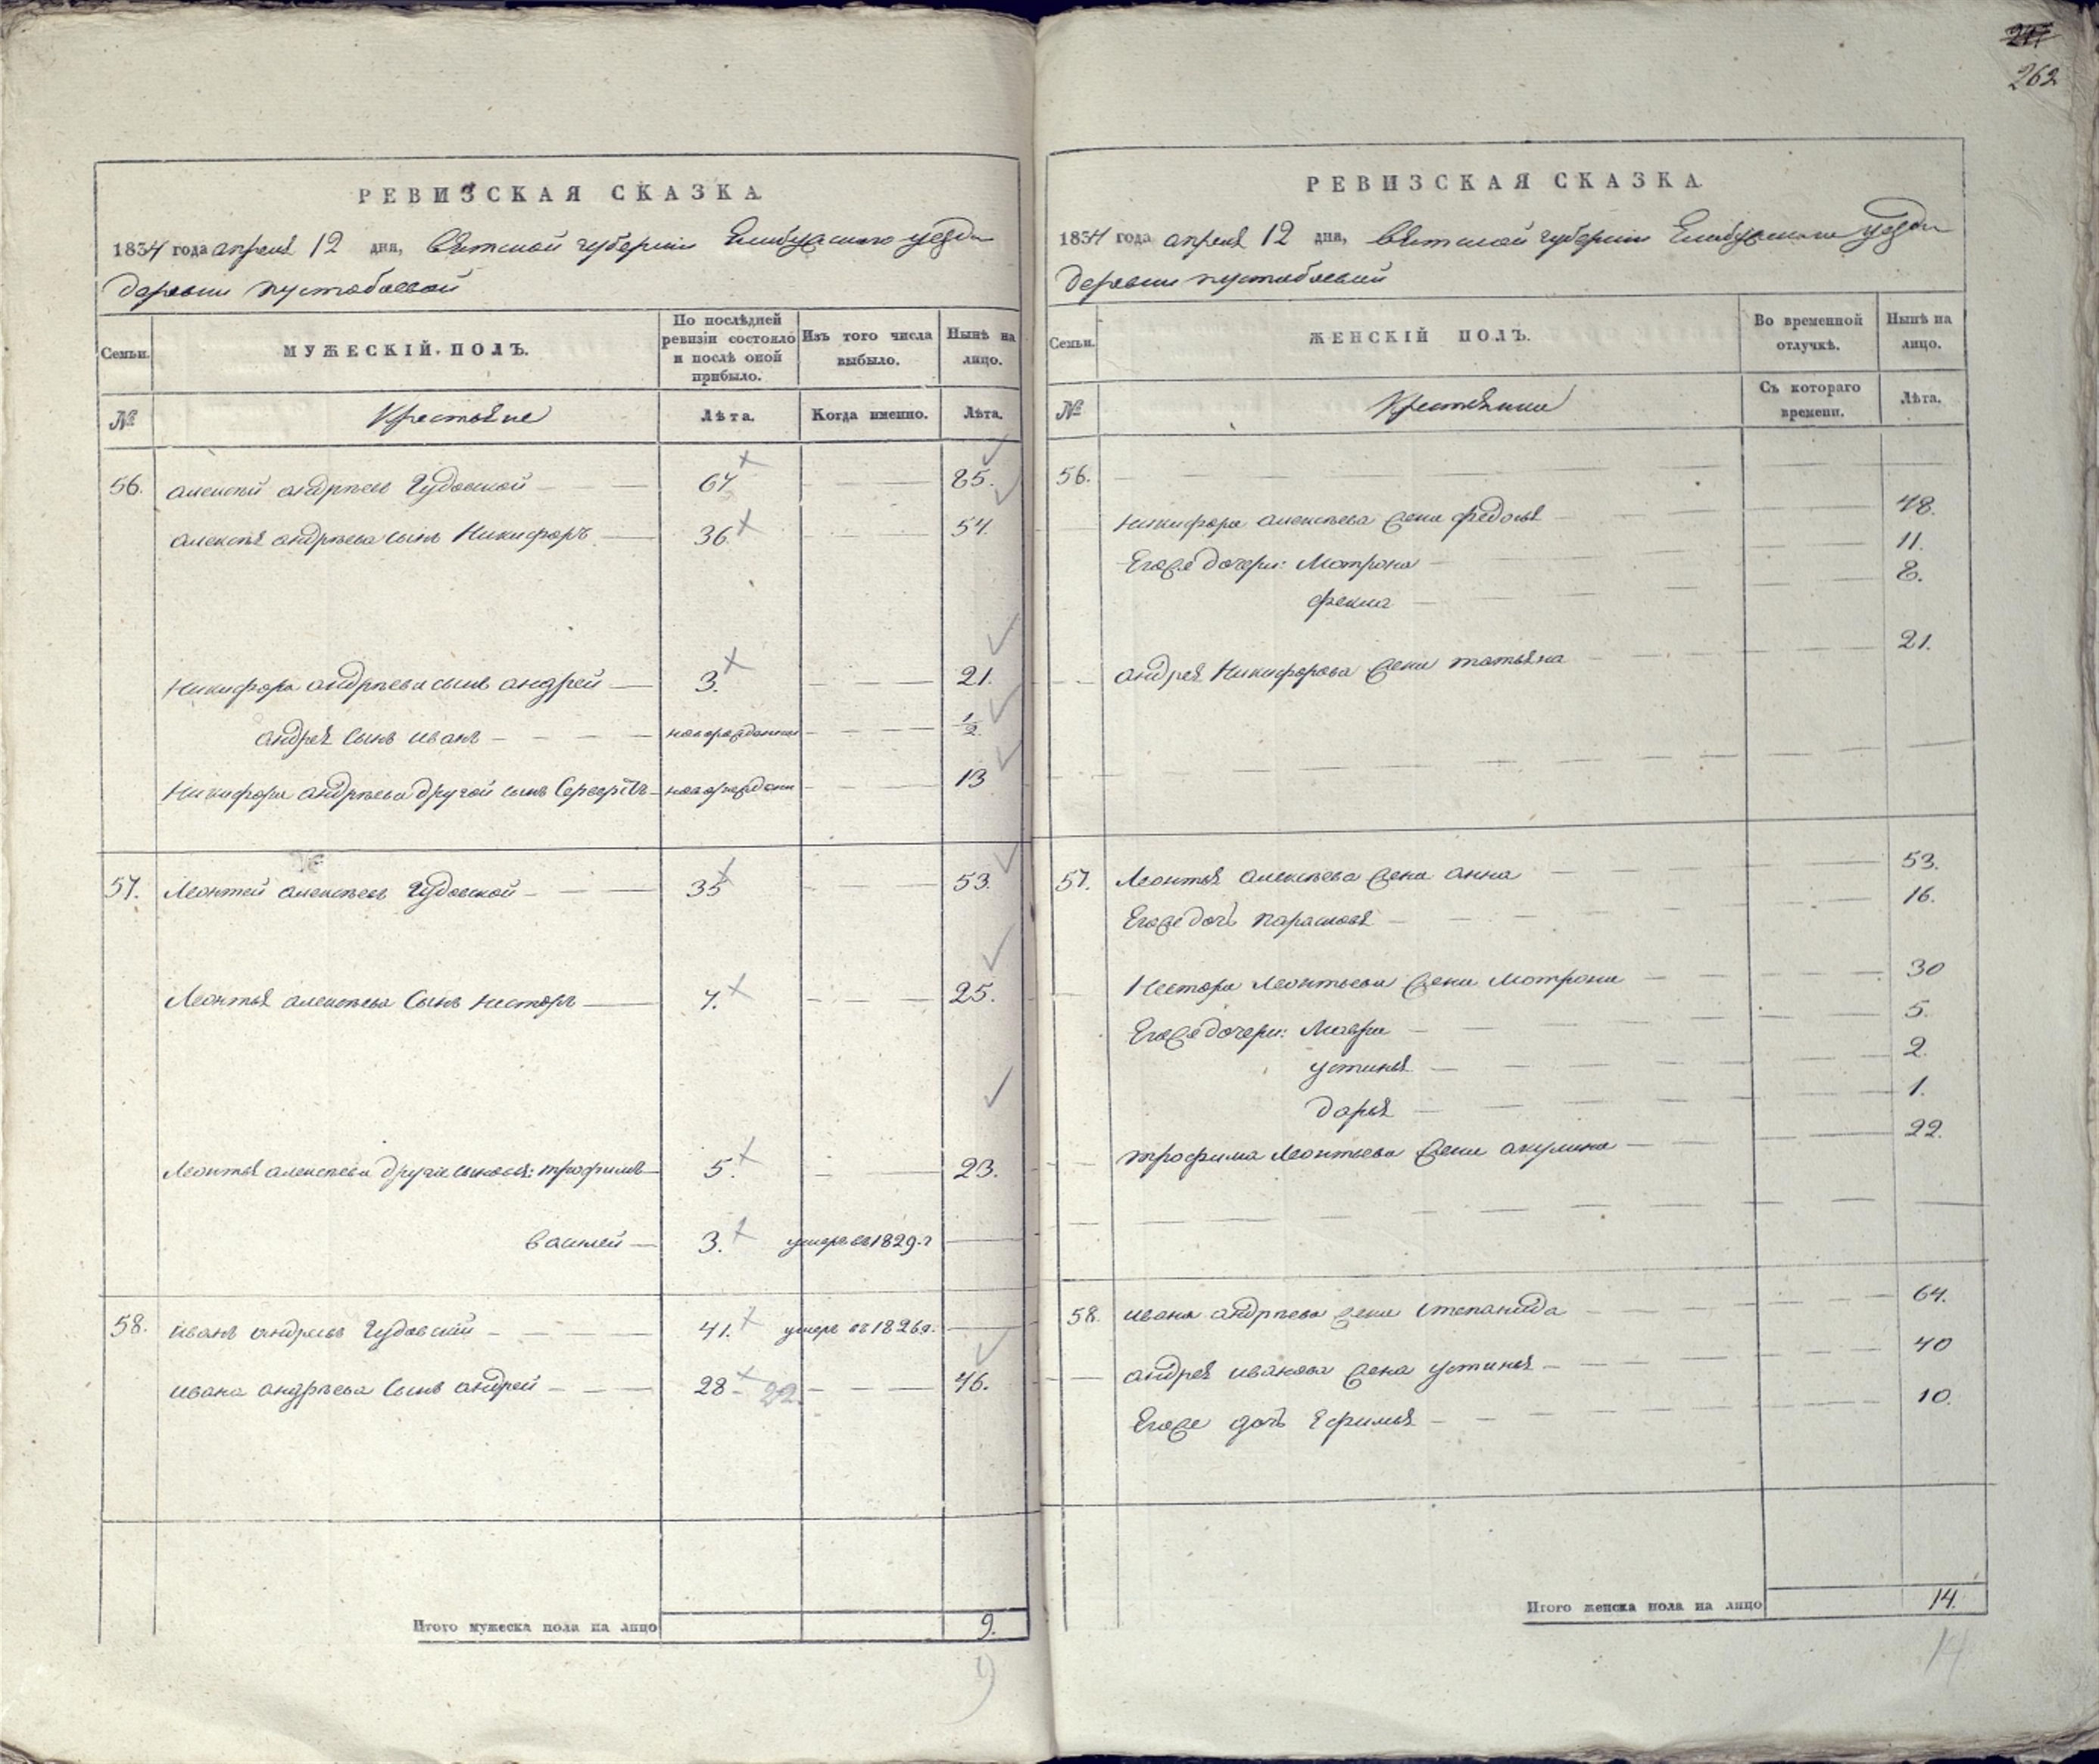 247
262
РЕВИЗСКАЯ СКАЗКА
1834 года апреля 12 дня, Вятской губернии Елабужскаго уезда
деревни пустобаевой
Семьи. МУЖЕСКІЙ ПОЛЪ. По послѣдней ревизіи состояло и послѣ оной прибыло. Изъ того числа выбыло. Нынѣ на лицо.
№ Крестьяне Лѣта. Когда именно. Лѣта.
56. алексей андреевъ Чудовской 67 85.
алексея андреева сынъ Никифоръ 36 54.
Никифора андреева сынъ андрей 3. 21.
андрея сынъ иванъ новорожденный 1/2
Никифора андреева другой сынъ новорожден 13
57. Леонтей алексеевъ Чудовской 35 53.
Леонтья алексеева сынъ Несторъ 7. 25.
Леонтья алексеева другие сыновья: трофимъ 5. 23.
василей 3. умеръ въ 1829. г
58. иванъ андреевъ Чудовский 41. умеръ въ 1826 г.
ивана андреева сынъ андрей 28 22. 46.
Итого мужеска пола на лицо 9.
9
РЕВИЗСКАЯ СКАЗКА
1834 года апреля 12 дня, Вятской губернии Елабужскаго уезда
деревни пустобаевой
Семьи. ЖЕНСКІЙ ПОЛЪ. Во временной отлучкѣ. Нынѣ на лицо.
№ Крестьянки Съ котораго времени. Лѣта.
56.
Никифора алексеева жена федосья 48.
Егоже дочери: Матрона 11.
фекла 8.
андрея Никифорова жена татьяна 21.
57. Леонтья алексеева жена анна 53.
Егоже дочь парасковья 16.
Нестора Леонтьева жена Матрона 30
Егоже дочери: Мавра 5.
устинья 2.
дарья 1.
трофима Леонтьева жена акулина 22.
58. ивана андреева жена степанида 64.
андрея иванова жена устинья 40
Егоже дочь Ефимья 10.
Итого женска пола на лицо 14.
14